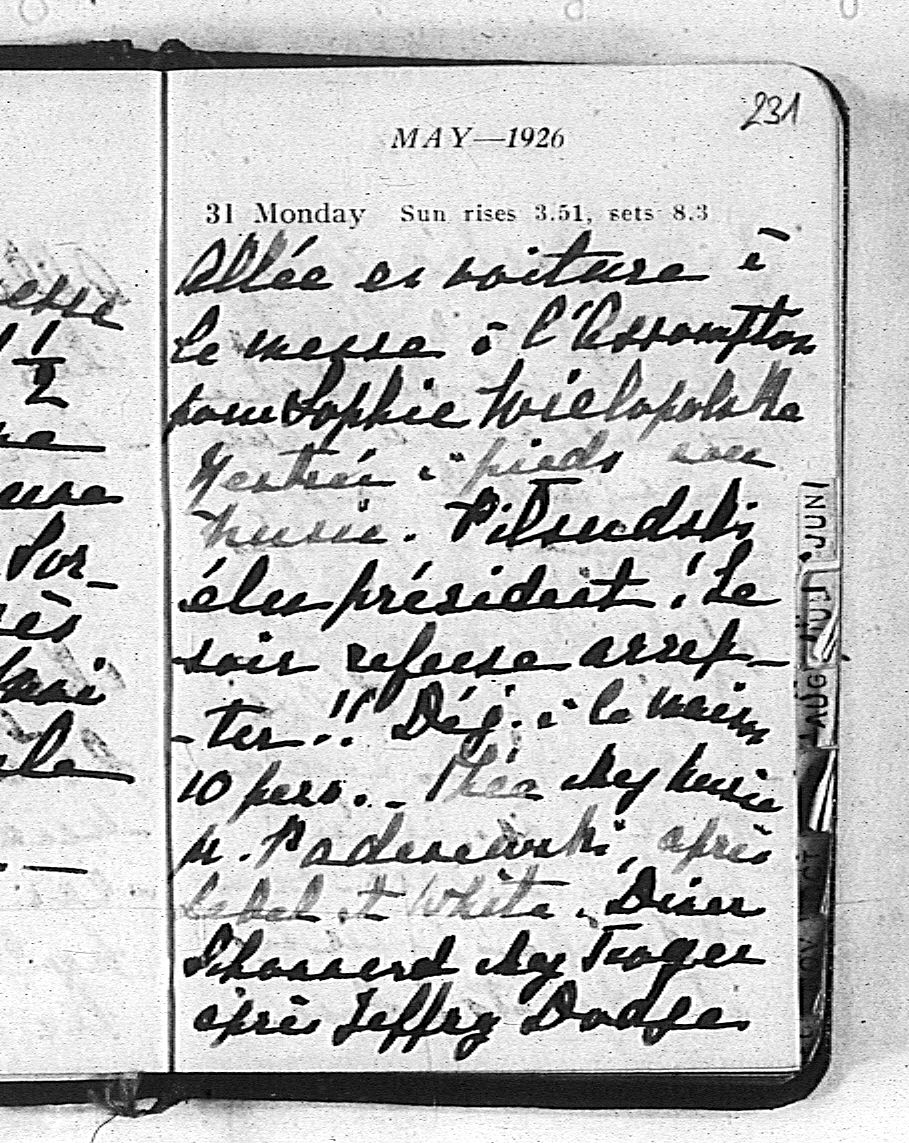 231
MAY—1926
31 Monday Sun rises 3.51, sets 8.3
Allée en voiture à
la messe à l'Assomption
pour Sophie Wielopolska
Rentrée à pieds avec
Pilsudski
élu président ! Le
soir refuse accep-
-ter !! Déj. à la maison
10 pers. - Thée chez
M. Paderewski, après
Lebel et White. Diner
chez
après Jeffry Dodge
esse
1 1/2
Por-
ès
JUNI
JULI
AUG
OCT
NOV